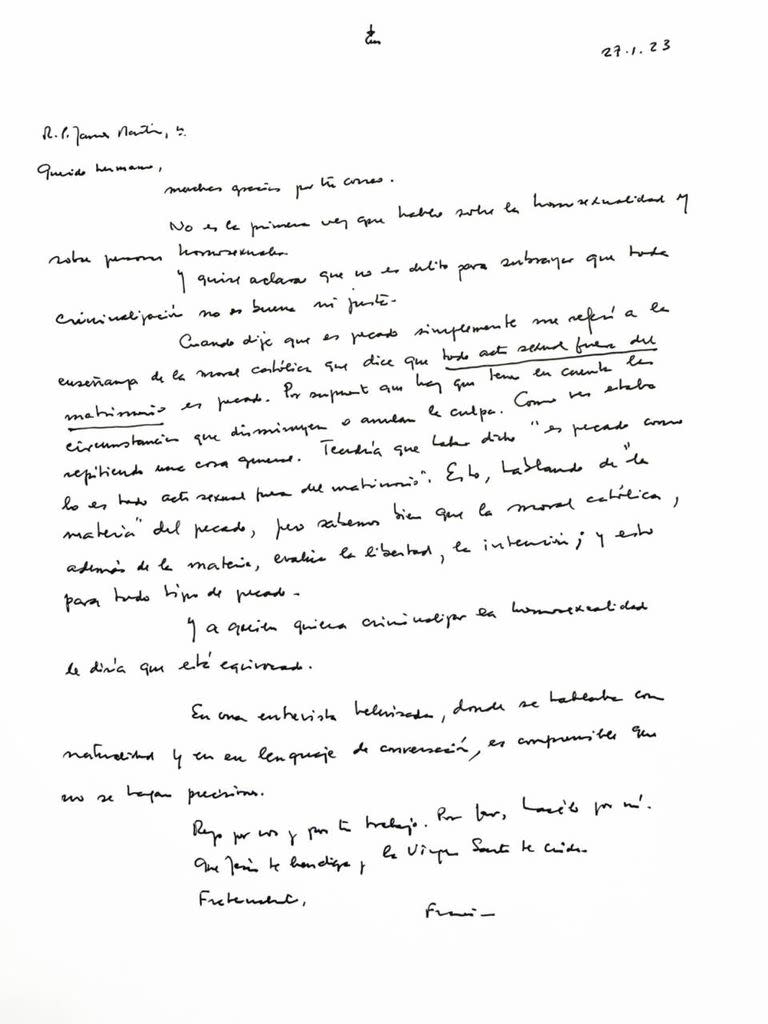 27.1.23
R.P. James Martin, sj.
Querido hermano,
muchas gracias por tu correo.
No es la primera vez que hablo sobre la homosexualidad y
sobre personas homosexuales.
Y quise aclarar que no es delito para subrayar que toda
criminalización no es buena ni justa.
Cuando dije que es pecado simplemente me referí a la
enseñanza de la moral católica que dice que todo acto sexual fuera del
matrimonio es pecado. Por supuesto que hay que tener en cuenta las
circunstancias que disminuyen o anulan la culpa. Como ves estaba
repitiendo una cosa general. Tendría que haber dicho "es pecado como
lo es todo acto sexual fuera del matrimonio". Esto, hablando de "la
materia" del pecado, pero sabemos bien que la moral católica,
además de la materia, evalúa la libertad, la intención; y esto
para todo tipo de pecado.
Y a quien quiera criminalizar la homosexualidad
le diría que está equivocado.
En una entrevista televisada, donde se hablaba con
naturalidad y en en lenguaje de conversación, es comprensible que
no se hagan precisiones.
Rezo por vos y por tu trabajo. Por favor, hacélo por mí.
Que Jesús te bendiga y la Virgen Santa te cuide.
Fraternalmente,